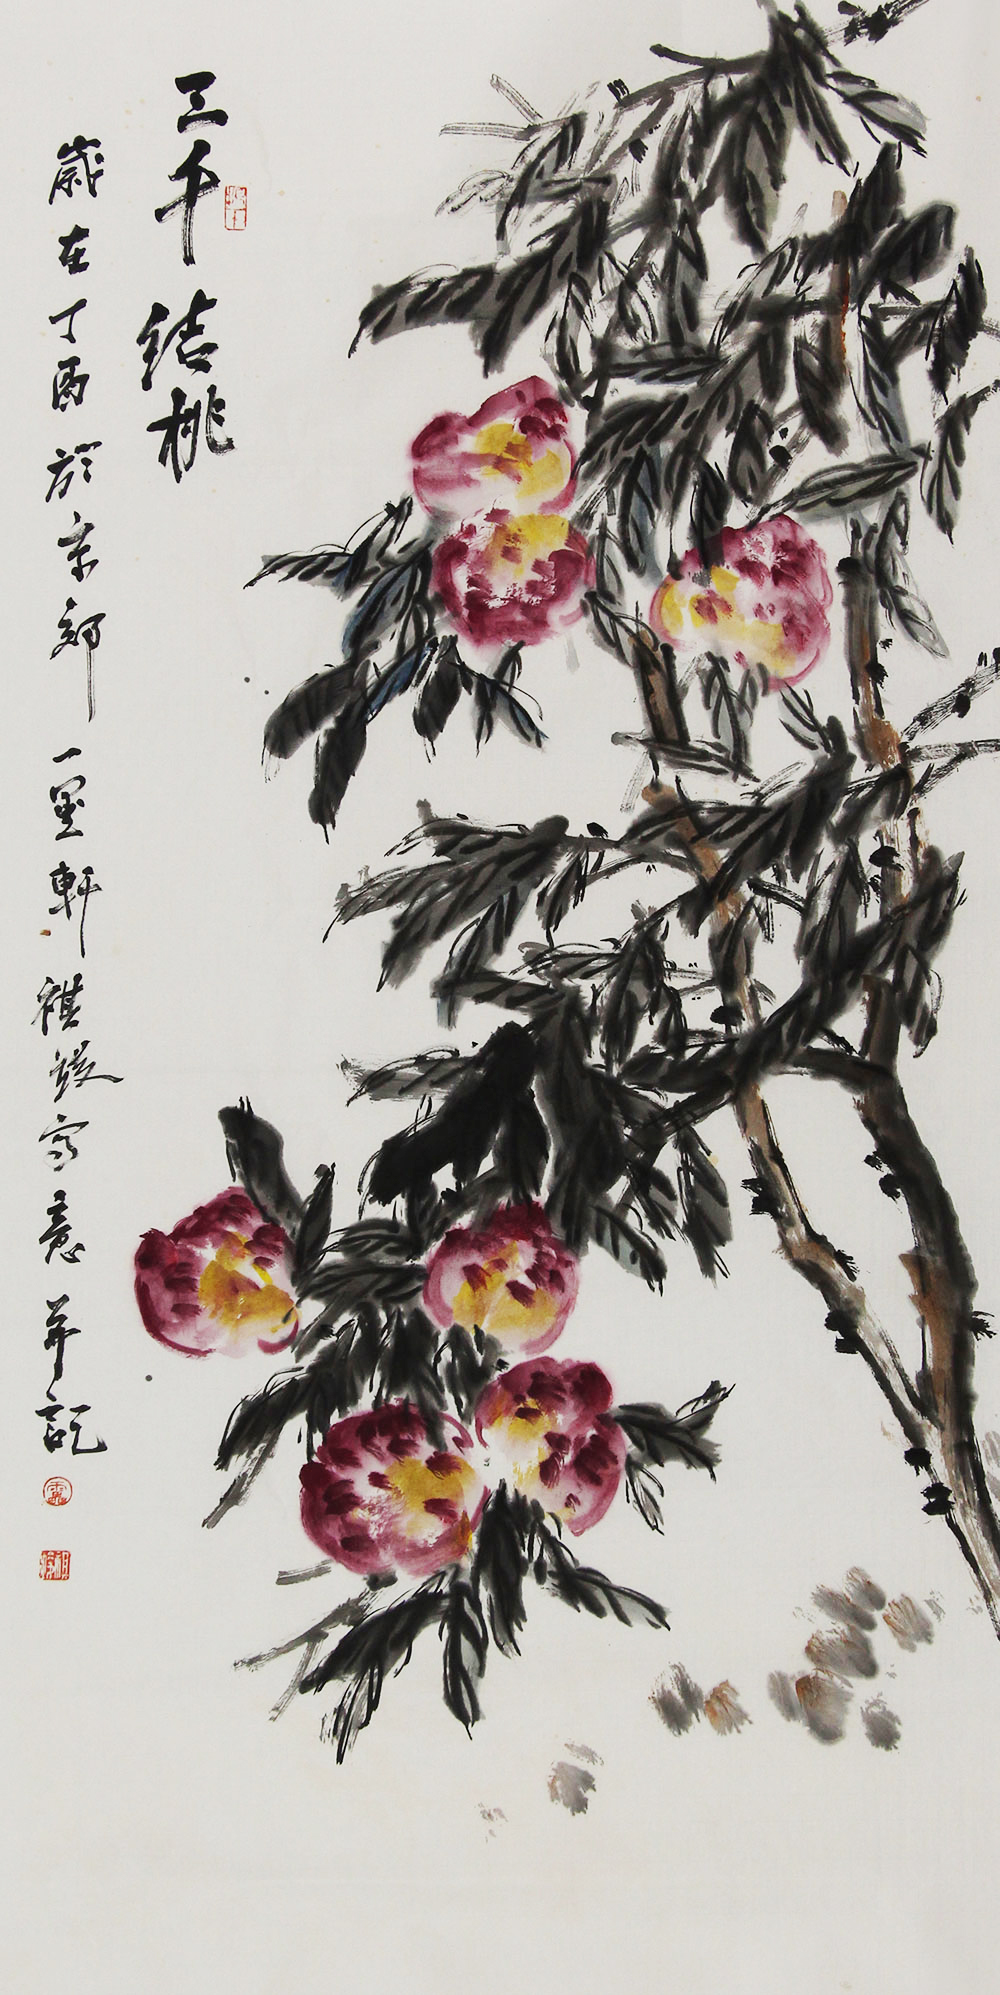 三千结桃
歲在丁酉於京郊一墨軒祺發写意並記